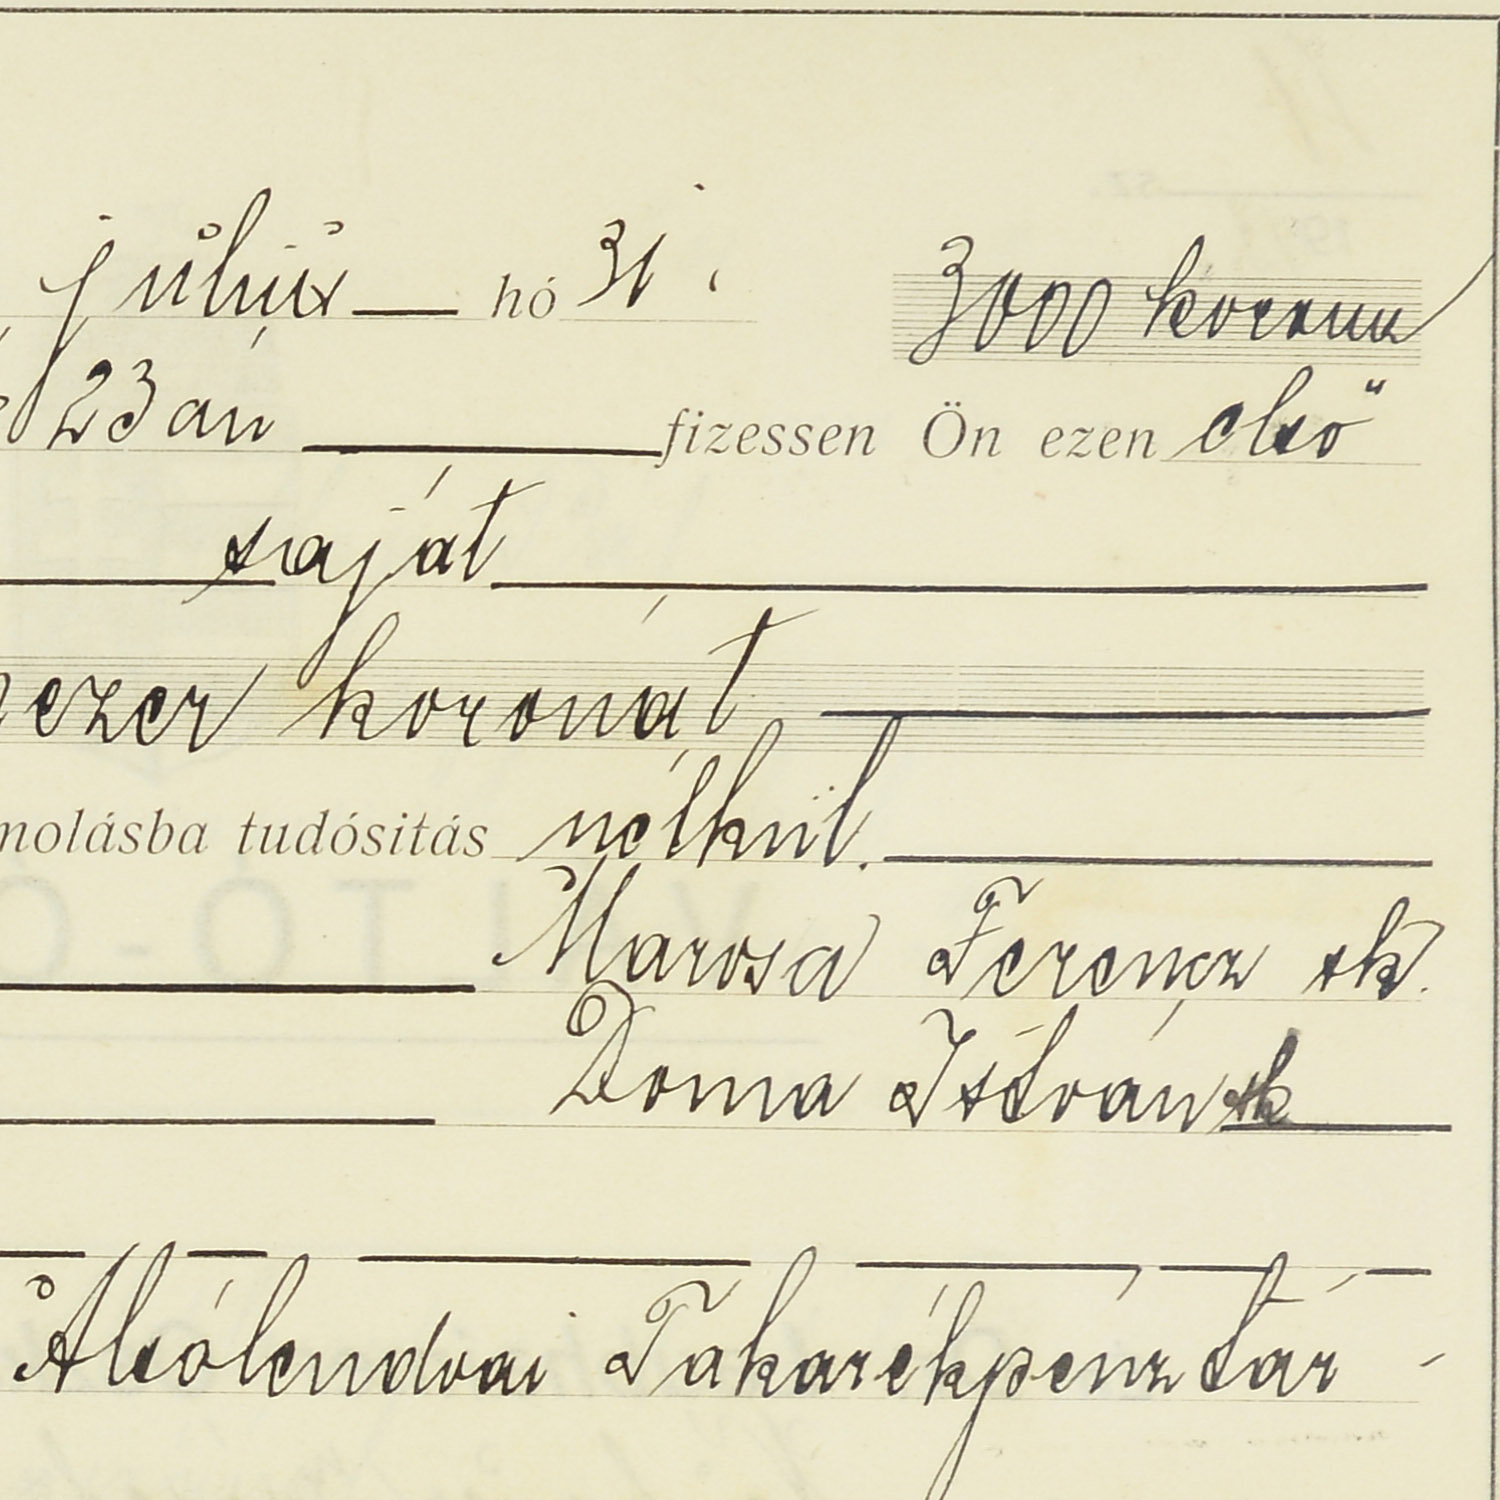 július hó 31. 3000 korona
23 án fizessen Ön ezen első
saját
ezer koronát
molásba tudósitás nélkül.
Marosa Ferencz sk.
Doma István sk
Alsólendvai Takarékpénztár